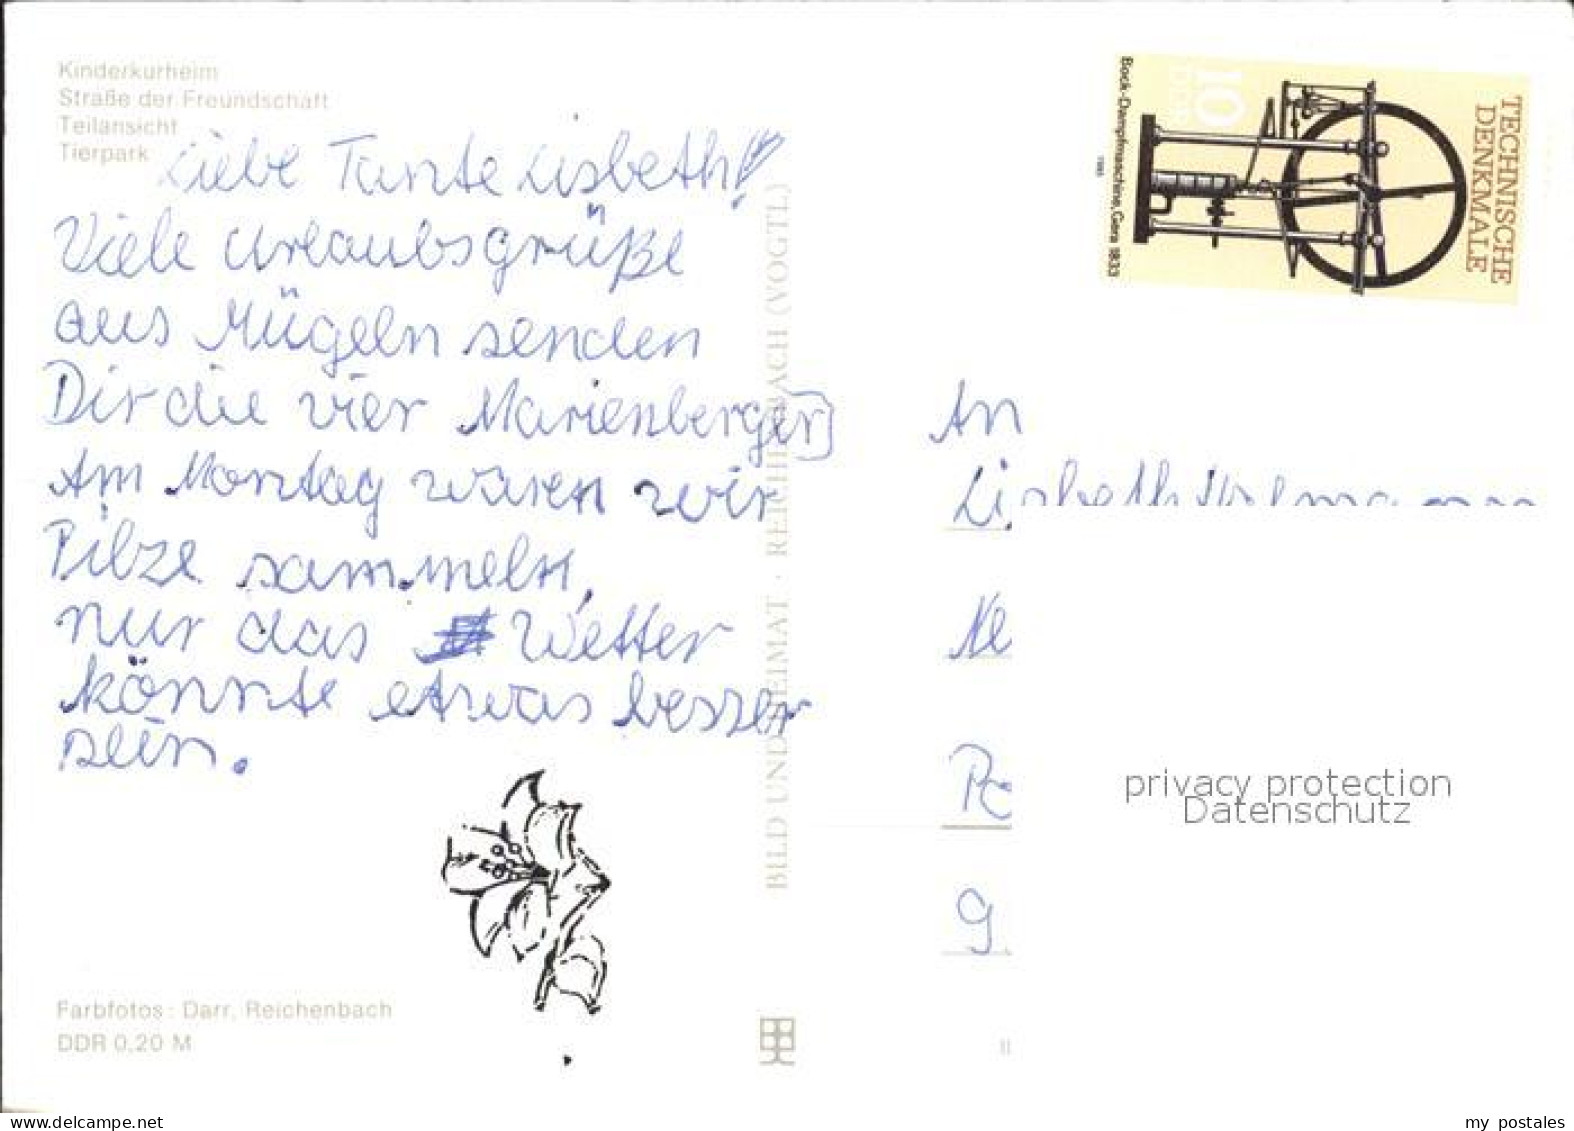 Kinderkurheim
Straße der Freundschaft
Teilansicht
Tierpark
Liebe Tante Lisbeth!
Viele Urlaubsgrüße
aus Mügeln senden
Dir die vier Marienberger
Am Montag waren wir
Pilze sammeln,
nur das Wetter
könnte etwas besser
sein.
Farbfotos: Darr, Reichenbach
DDR 0,20 M
BILD UND HEIMAT · REICHENBACH (VOGTL)
TECHNISCHE
DENKMALE
10
DDR
Bock-Dampfmaschine, Gera 1833
1985
An
Lisbeth
Ne
9
privacy protection
Datenschutz
delcampe.net
my postales